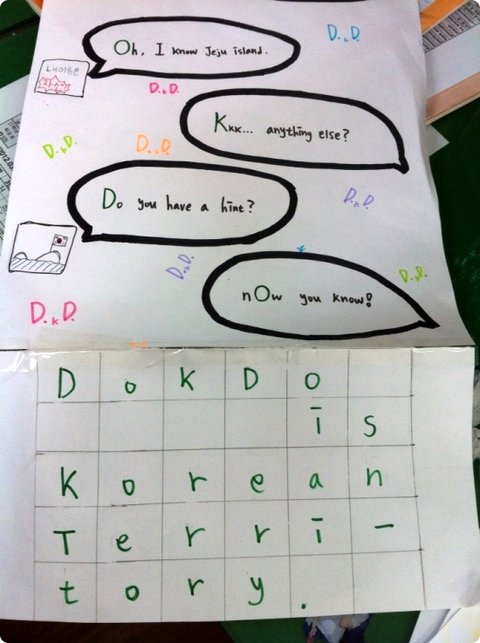 Oh, I know Jeju island.
D.kD.
D.kD.
Kkk... anything else?
D.kD.
D.kD.
Do you have a hint?
D.kD.
D.kD.
nOw you know!
D.kD.
D.kD.
DokDo
is
Korean
Terri-
tory.